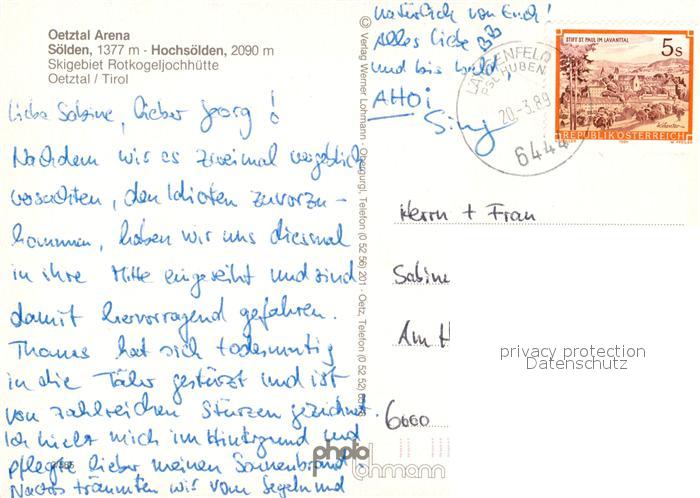 Oetztal Arena
Sölden, 1377 m - Hochsölden, 2090 m
Skigebiet Rotkogeljochhütte
Oetztal / Tirol
Liebe Sabine, lieber Georg!
Nachdem wir es zweimal vergeblich
versuchten, den Idioten zuvorzu-
kommen, haben wir uns diesmal
in ihre Mitte eingereiht und sind
damit hervorragend gefahren.
Thomas hat sich todesmutig
in die Täler gestürzt und ist
von zahlreichen Stürzen gezeichnet.
Ich hielt mich im Hintergrund und
pflegte lieber meinen Sonnenbrand.
Nachts träumten wir vom Segeln und
natürlich von Euch!
Alles liebe
und bis bald,
AHOi
© Verlag Werner Lohmann · Obergurgl, Telefon (0 52 56) 201 · Oetz, Telefon (0 52 52)
photo
lohmann
STIFT ST. PAUL IM LAVANTTAL
5s
REPUBLIK ÖSTERREICH
LÄNGENFELD
PSL HUBEN
20.-3.89
6444
Herrn + Frau
Sabine
Am H
6000
privacy protection
Datenschutz